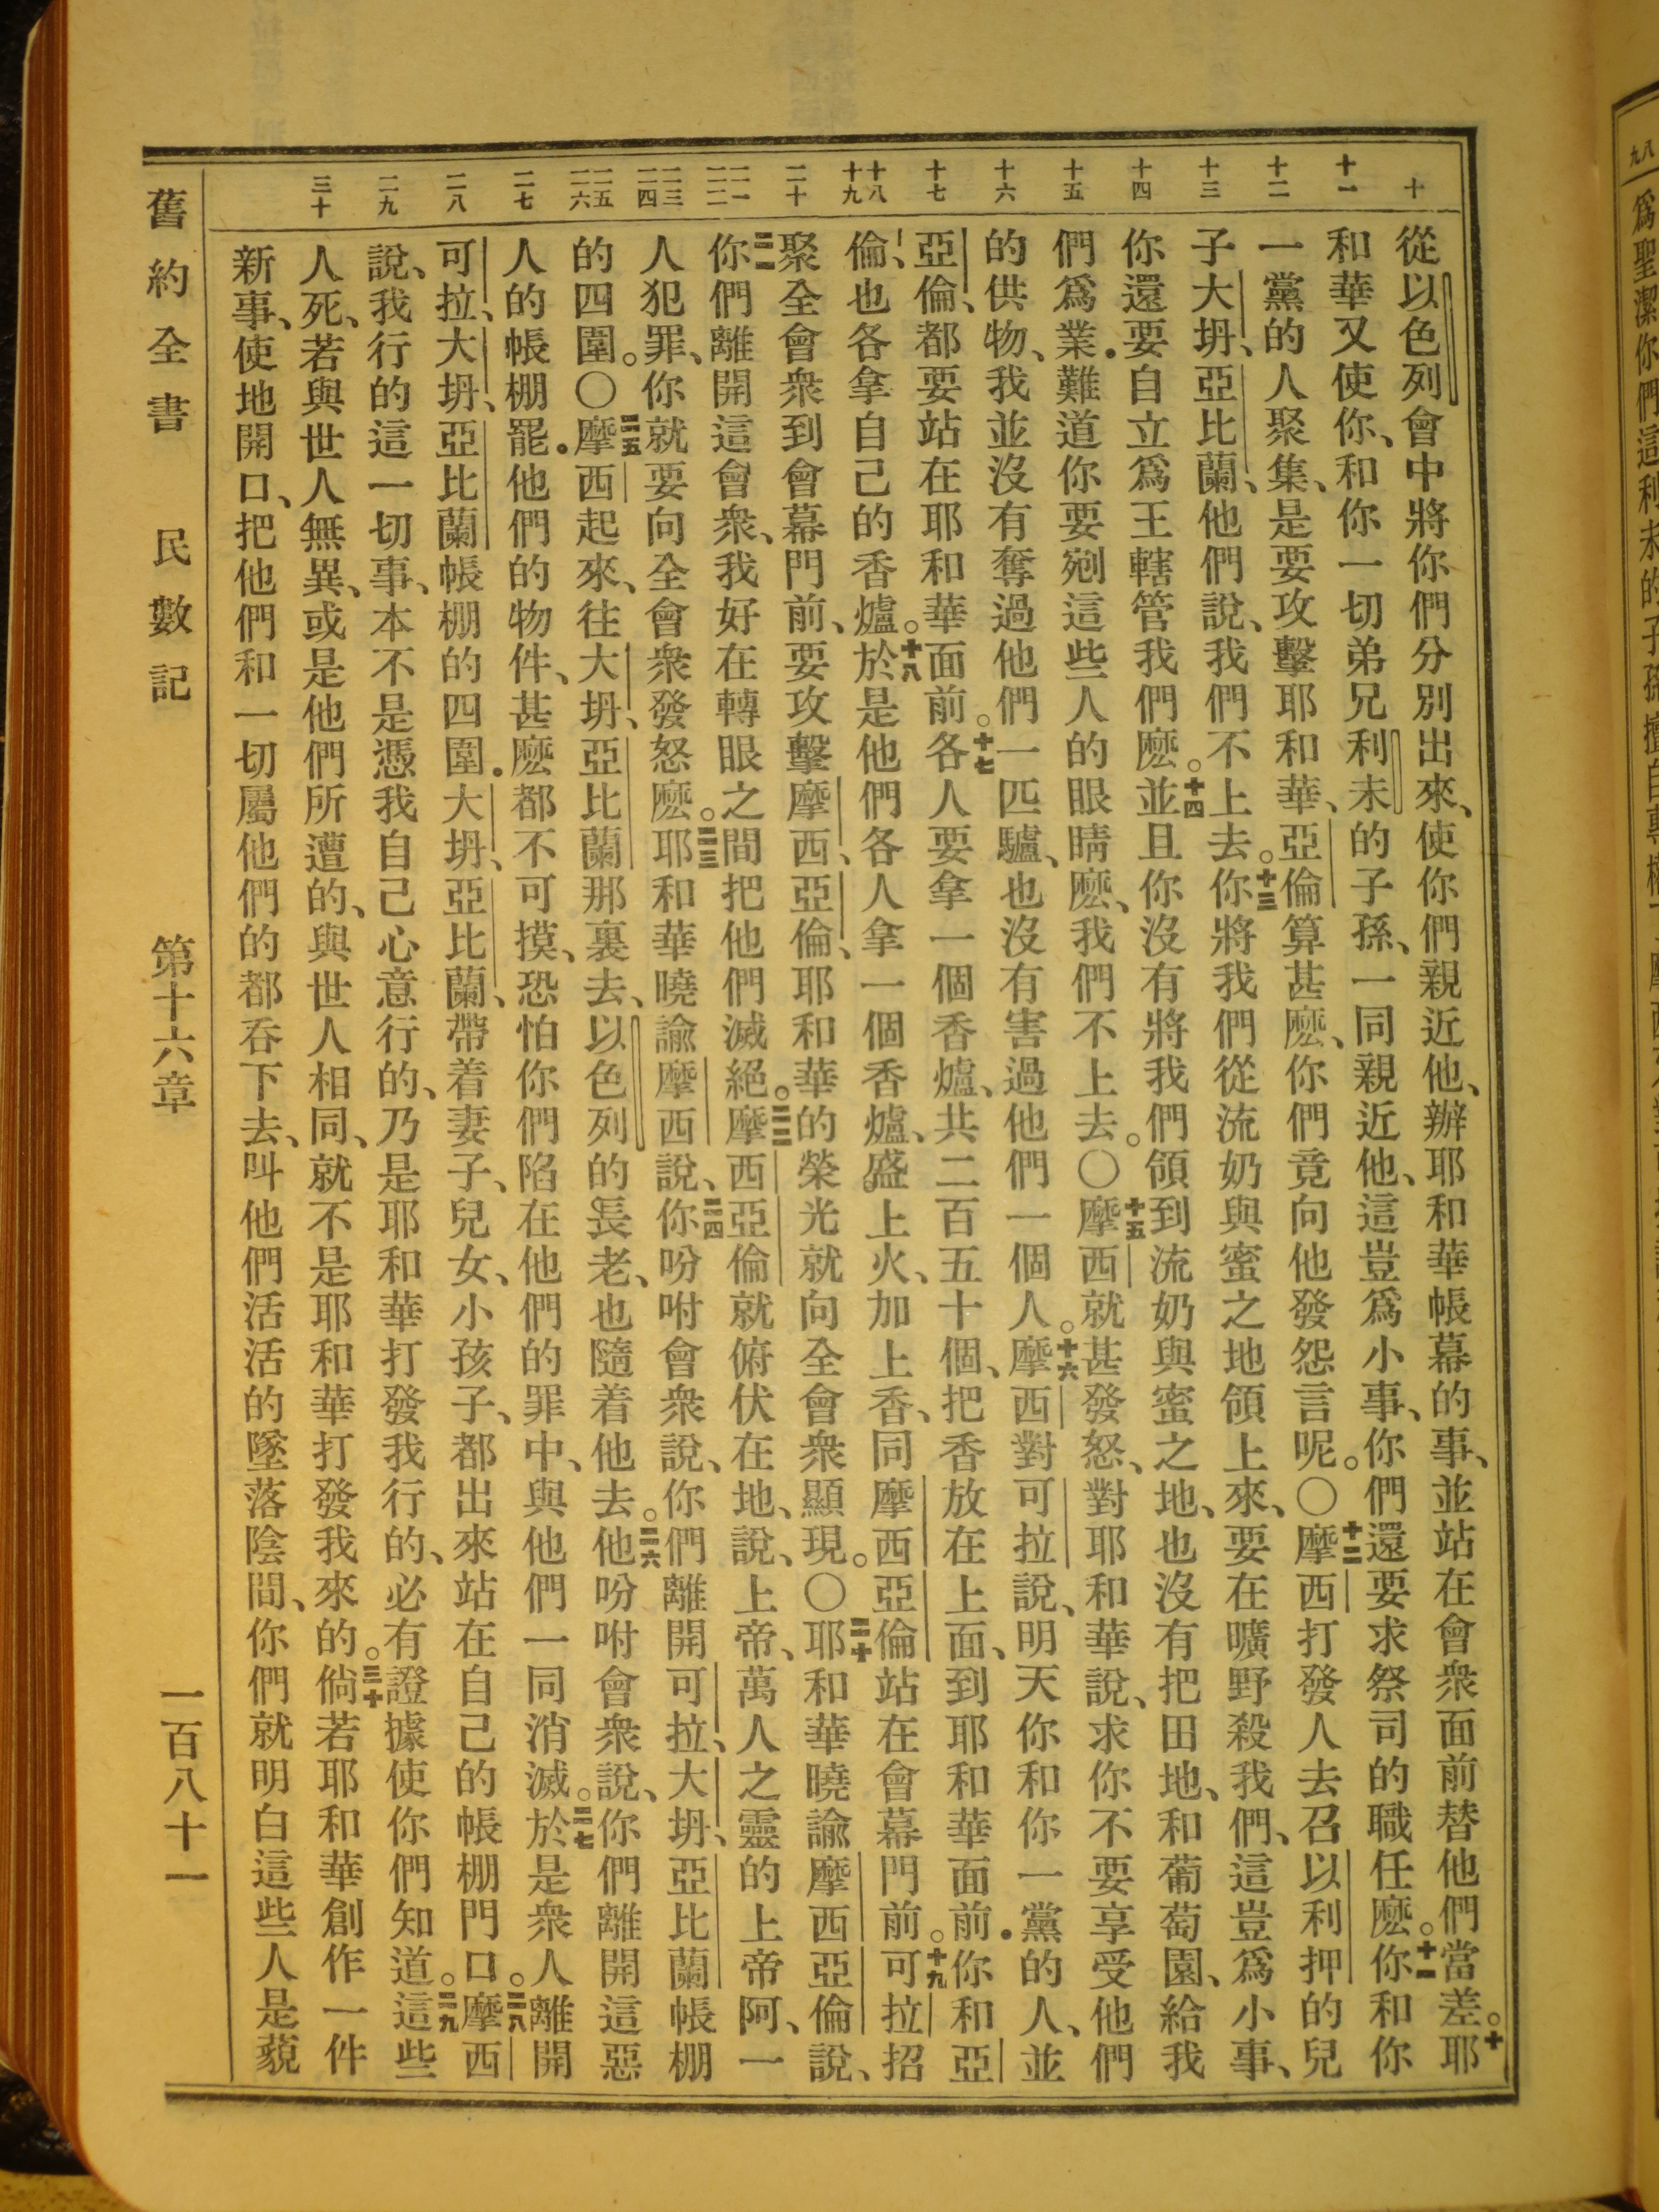 十 十一 十二 十三 十四 十五 十六 十七 十八 十九 二十 二一 二二 二三 二四 二五 二六 二七 二八 二九 三十
從以色列會中將你們分別出來、使你們親近他、辦耶和華帳幕的事、並站在會衆面前替他們當差。十耶
和華又使你、和你一切弟兄利未的子孫、一同親近他、這豈爲小事、你們還要求祭司的職任麽。十一你和你
一黨的人聚集、是要攻擊耶和華、亞倫算甚麽、你們竟向他發怨言呢。〇十二摩西打發人去召以利押的兒
子大坍、亞比蘭、他們說、我們不上去。十三你將我們從流奶與蜜之地領上來、要在曠野殺我們、這豈爲小事、
你還要自立爲王轄管我們麽。十四並且你沒有將我們領到流奶與蜜之地、也沒有把田地、和葡萄園、給我
們爲業．難道你要剜這些人的眼睛麽、我們不上去。〇十五摩西就甚發怒、對耶和華說、求你不要享受他們
的供物、我並沒有奪過他們一匹驢、也沒有害過他們一個人。十六摩西對可拉說、明天你和你一黨的人、並
亞倫、都要站在耶和華面前。十七各人要拿一個香爐、共二百五十個、把香放在上面、到耶和華面前．你和亞
倫、也各拿自己的香爐。十八於是他們各人拿一個香爐、盛上火、加上香、同摩西亞倫站在會幕門前。十九可拉招
聚全會衆到會幕門前、要攻擊摩西、亞倫、耶和華的榮光就向全會衆顯現。〇二十耶和華曉諭摩西亞倫說、
二一你們離開這會衆、我好在轉眼之間把他們滅絕。二二摩西亞倫就俯伏在地、說、上帝、萬人之靈的上帝阿、一
人犯罪、你就要向全會衆發怒麽。二三耶和華曉諭摩西說、二四你吩咐會衆說、你們離開可拉、大坍、亞比蘭帳棚
的四圍。〇二五摩西起來、往大坍、亞比蘭那裏去、以色列的長老、也隨着他去。二六他吩咐會衆說、你們離開這惡
人的帳棚罷．他們的物件、甚麽都不可摸、恐怕你們陷在他們的罪中、與他們一同消滅。二七於是衆人離開
可拉、大坍、亞比蘭帳棚的四圍．大坍、亞比蘭、帶着妻子、兒女、小孩子、都出來站在自己的帳棚門口。二八摩西
說、我行的這一切事、本不是憑我自己心意行的、乃是耶和華打發我行的、必有證據使你們知道。二九這些
人死、若與世人無異、或是他們所遭的、與世人相同、就不是耶和華打發我來的。三十倘若耶和華創作一件
新事、使地開口、把他們和一切屬他們的都吞下去、叫他們活活的墜落陰間、你們就明白這些人是藐
舊約全書 民數記 第十六章 一百八十一